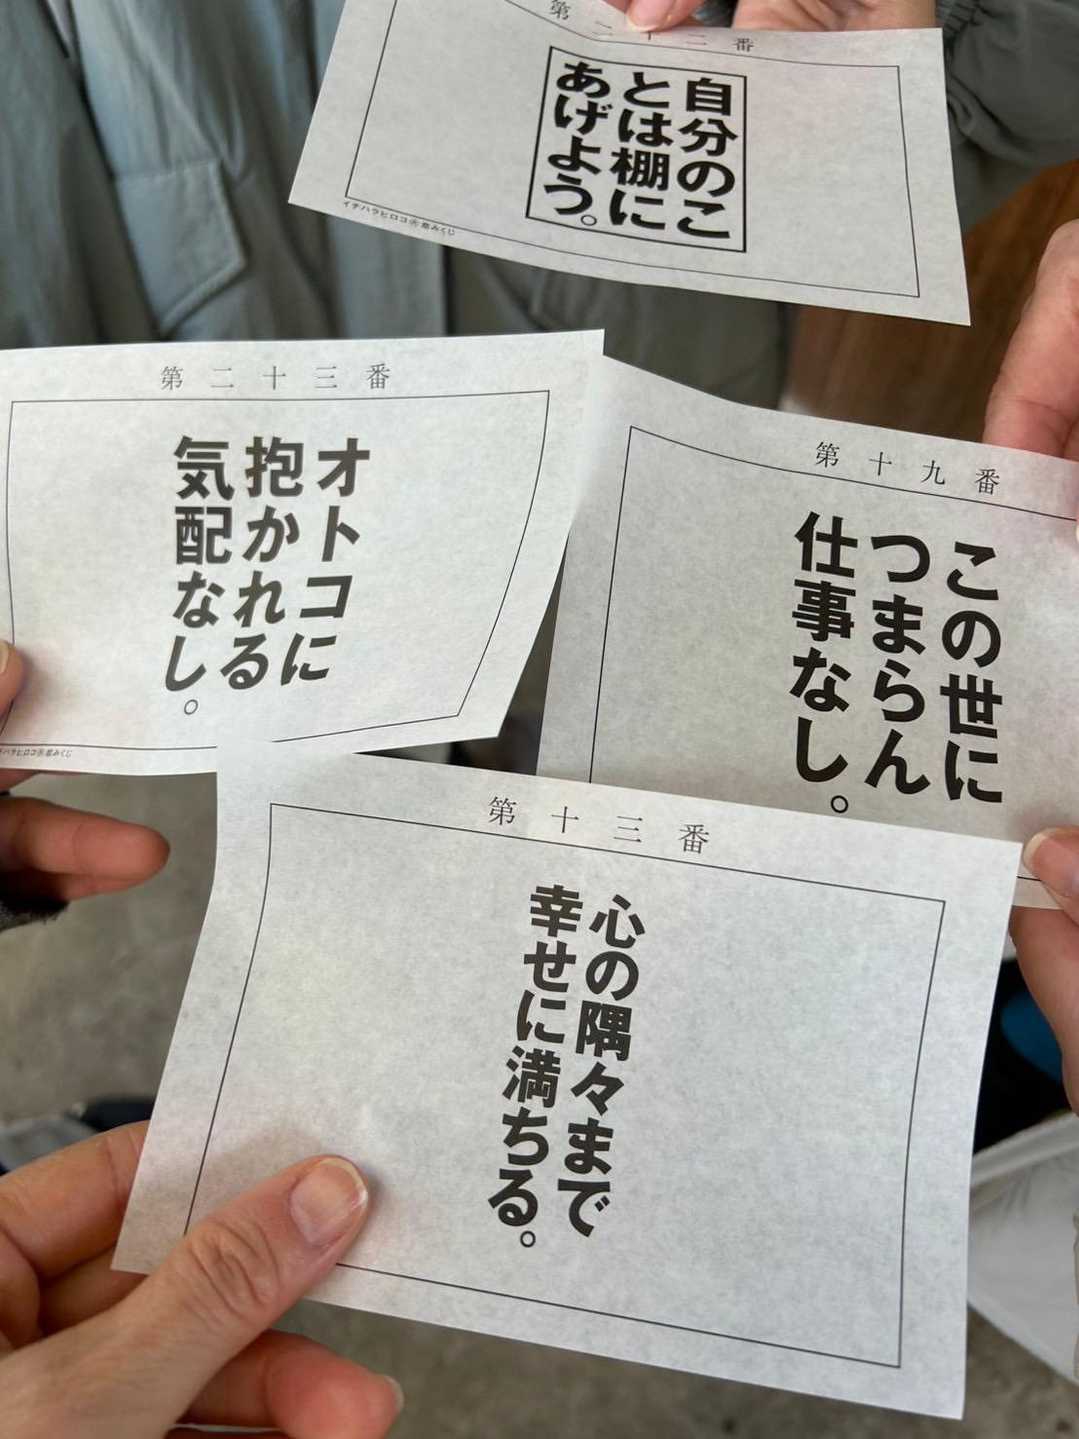 第二十二番
自分のこ
とは棚に
あげよう。
イチハラヒロコ恋みくじ
第二十三番
オトコに
抱かれる
気配なし。
イチハラヒロコ恋みくじ
第十九番
この世に
つまらん
仕事なし。
第十三番
心の隅々まで
幸せに満ちる。